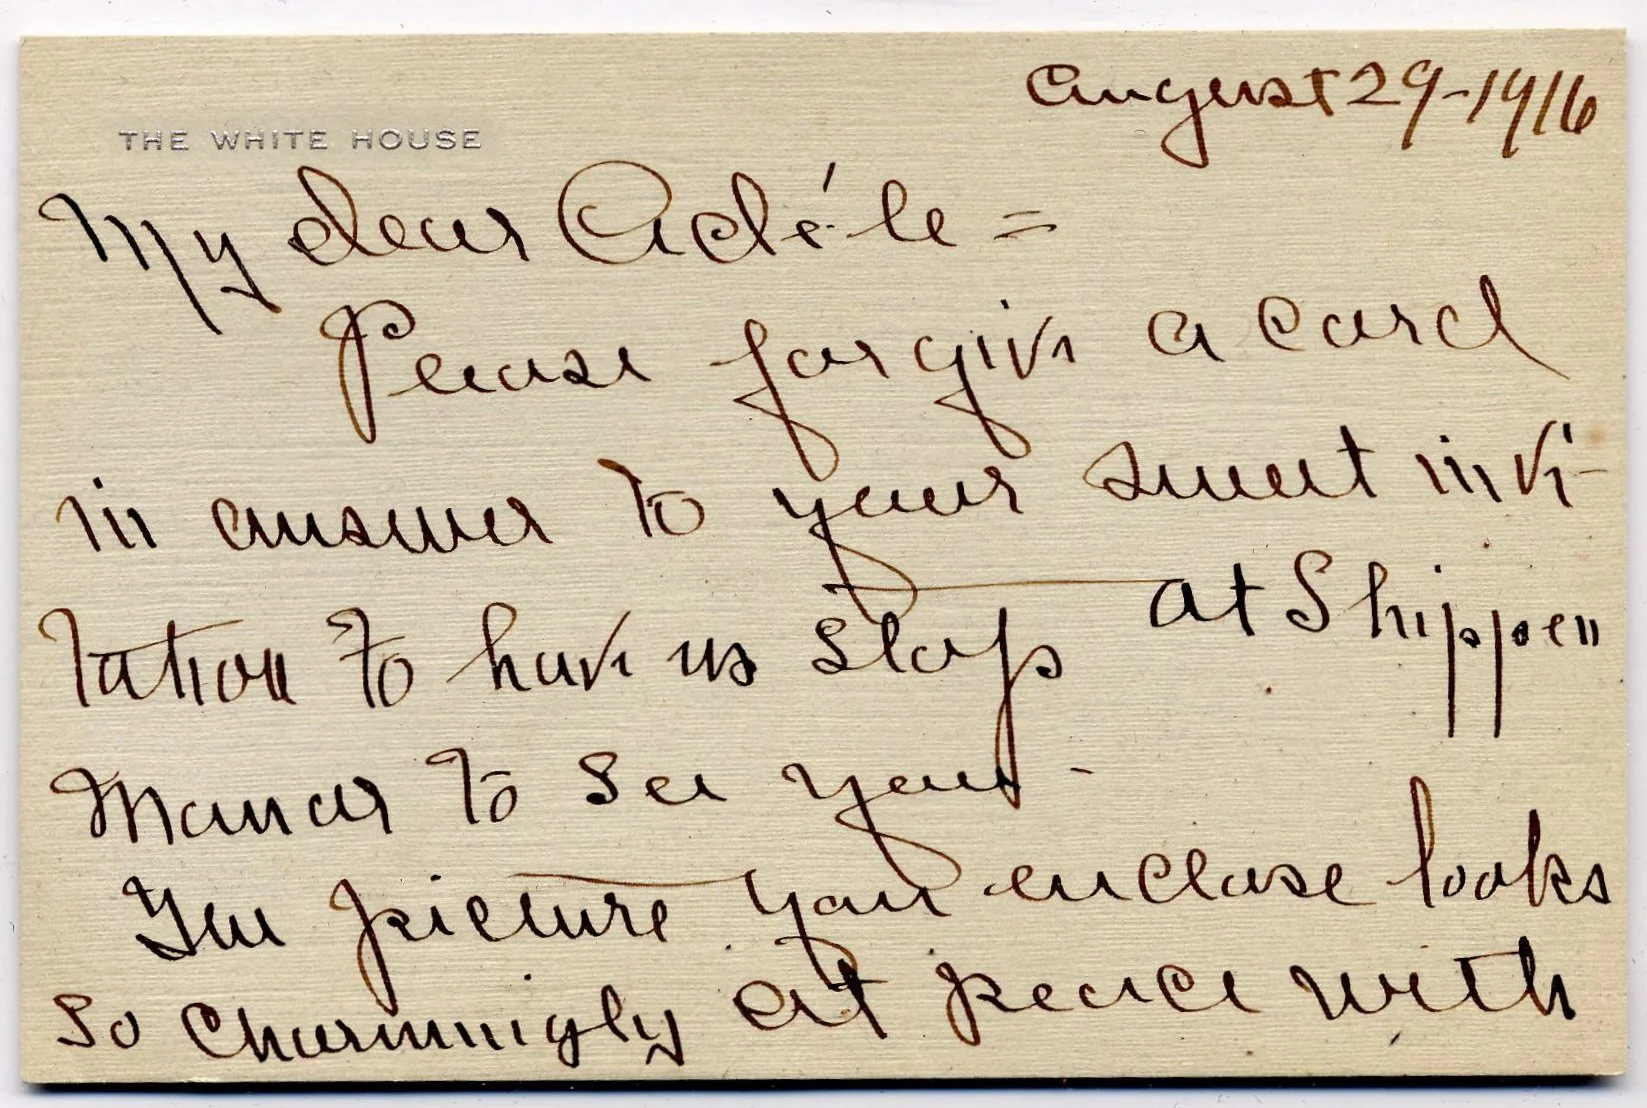 August 29-1916
THE WHITE HOUSE
My dear Adéle =
Please forgive a card
in answer to your sweet invi-
tation to have us stop at Shippen
Manor to see you -
The picture you enclose looks
so charmingly at peace with